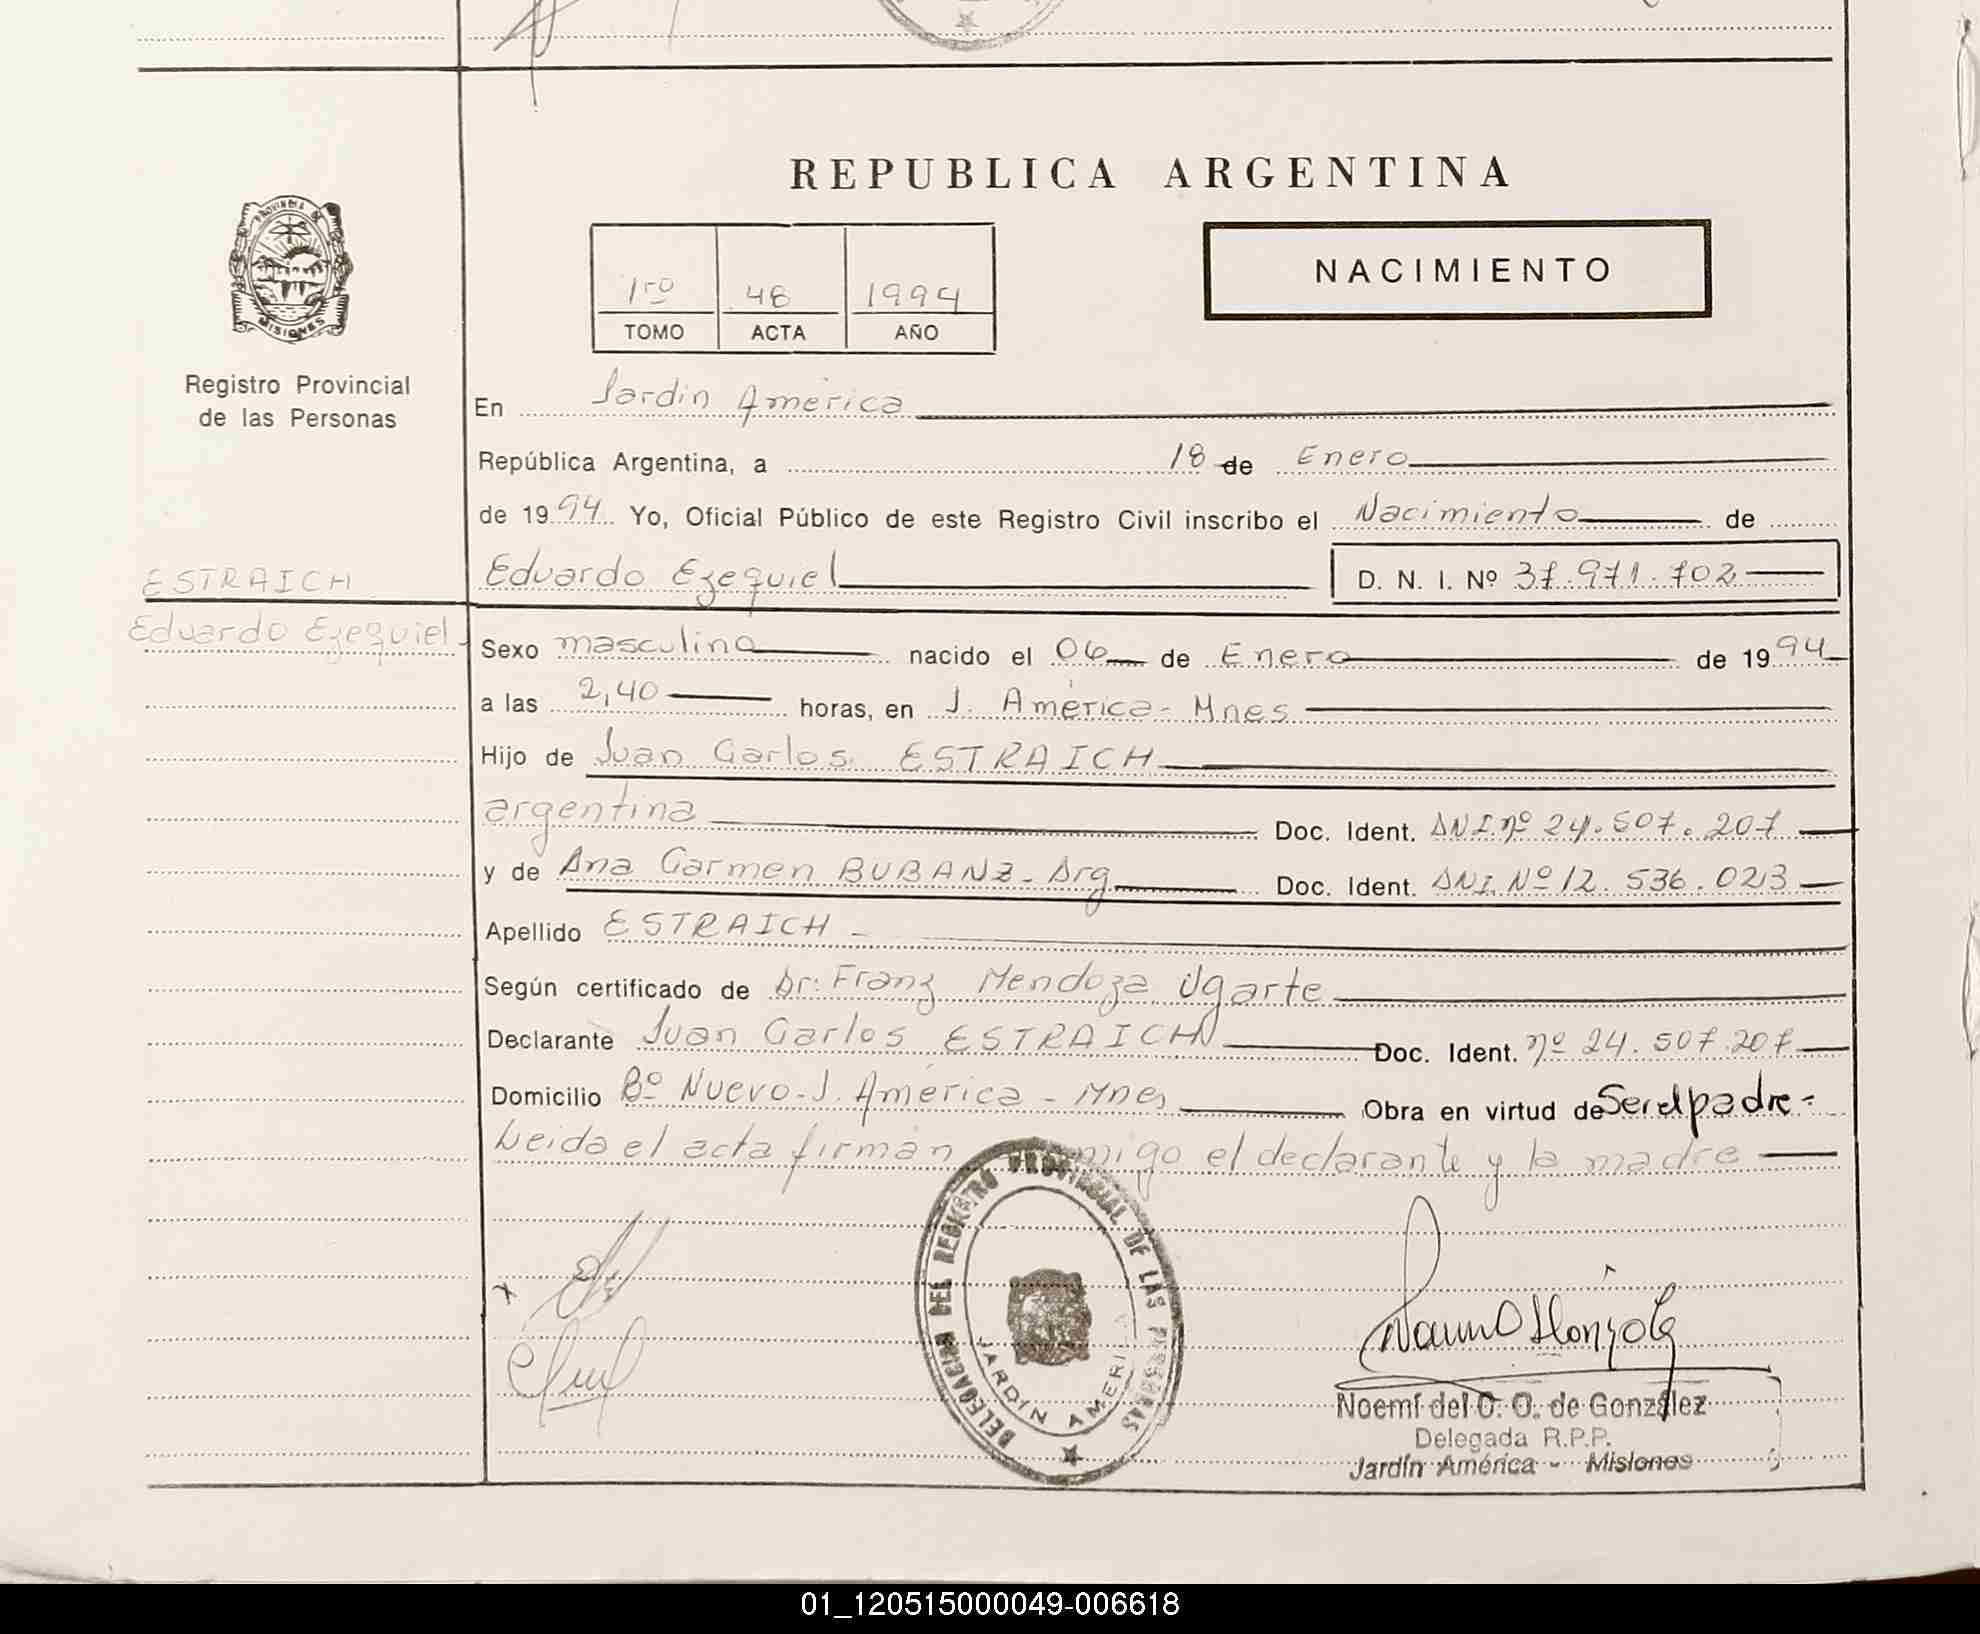 REPUBLICA ARGENTINA
PROVINCIA DE
MISIONES
Registro Provincial
de las Personas
1ro 48 1994
TOMO ACTA AÑO
NACIMIENTO
En Jardin América
República Argentina, a 18 de Enero
de 1994 Yo, Oficial Público de este Registro Civil inscribo el Nacimiento de
ESTRAICH
Eduardo Ezequiel
Eduardo Ezequiel D. N. I. Nº 37.971.702
Sexo masculino nacido el 06 de Enero de 1994
a las 2,40 horas, en J. América - Mnes
Hijo de Juan Carlos ESTRAICH
argentina Doc. Ident. DNI.nº 24.507.207
y de Ana Carmen BUBANZ - Arg Doc. Ident. DNI. Nº 12.536.023
Apellido ESTRAICH -
Según certificado de Dr: Franz Mendoza Ugarte
Declarante Juan Carlos ESTRAICH Doc. Ident. nº 24.507.207
Domicilio Bº Nuevo - J. América - Mnes Obra en virtud de Ser el padre -
Leida el acta firman migo el declarante y la madre
DELEGACION DEL REGISTRO PROVINCIAL DE LAS PERSONAS
JARDIN AMERICA
Noemí del C. O. de González
Delegada R.P.P.
Jardín América - Misiones
01_120515000049-006618